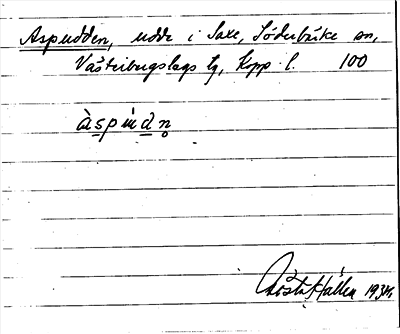 Aspudden, udde i Saxe, Söderbärke sn,
Västerbergslags tg, Kopp. l. 100
àspùdn̥
Gösta Hallen 1934